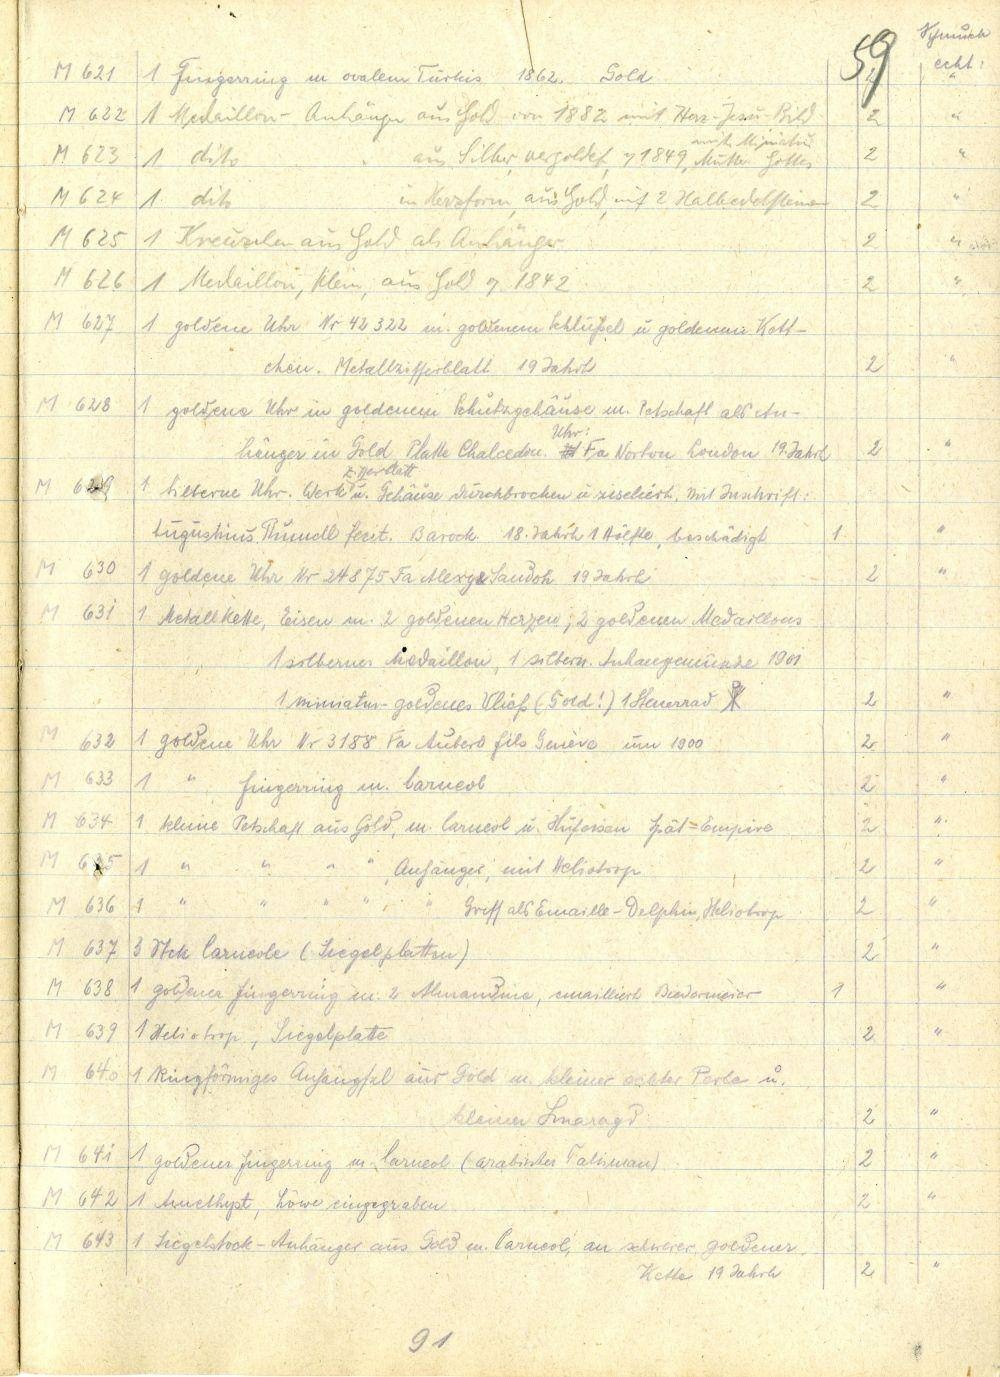 59 Schmuck
echt:
M 621 1 Fingerring m ovalem Türkis 1862. Gold 2 "
M 622 1 Medaillon- Anhänger aus Gold von 1882 mit Herz-Jesu-Bild 2 "
mit Miniatur
M 623 1 dito " aus Silber, vergoldet, 1849, Mutter Gottes 2 "
M 624 1 dito in Herzform, aus Gold, mit 2 Halbedelsteinen 2 "
M 625 1 Kreuzlen aus Gold als Anhänger 2 "
M 626 1 Medaillon, klein, aus Gold 1842 2 "
M 627 1 goldene Uhr Nr 42322 m. goldenem Schlüßel u goldenem Kett-
chen. Metallzifferblatt 19 Jahrh 2 "
M 628 1 goldene Uhr in goldenem Schutzgehäuse m. Petschaft als An-
Uhr:
hänger in Gold Platte Chalcedon. Fa Norton London 19. Jahrh 2 "
Zifferblatt
M 629 1 silberne Uhr. Werk u. Gehäuse durchbrochen u ziseliert. Mit Inschrift:
Augustinus fecit. Barock 18. Jahrh 1 Hälfte, beschädigt 1 "
M 630 1 goldene Uhr Nr 24875 Fa Sandoh 19 Jahrh 2 "
M 631 1 Metallkette, Eisen m. 2 goldenen Herzen, 2 goldenen Medaillons
1 silbernes Medaillon, 1 silbern. Anhangemünze 1901
1 miniatur- goldenes Vließ (Gold!) 1 Steuerrad 2 "
M 632 1 goldene Uhr Nr 3188 Fa Aubert fils Genève um 1900 2 "
M 633 1 " Fingerring m. Carneol 2 "
M 634 1 kleine Petschaft aus Gold, m. Carneol u. Hufeisen Spät=Empire 2 "
M 635 1 " " " " Anhänger, mit Heliotrop 2 "
M 636 1 " " " " " Griff als Emaille-Delphin, Heliotrop 2 "
M 637 3 Stck Carneole (Siegelplatten) 2 "
M 638 1 goldener Fingerring m. 2 Almandine, emailliert Biedermeier 1 "
M 639 1 Heliotrop, Siegelplatte 2 "
M 640 1 Ringförmiges Anhängsel aus Gold m. kleiner echter Perle u.
kleinen Smaragd 2 "
M 641 1 goldener Fingerring m. Carneol (arabischer Talisman) 2 "
M 642 1 Amethyst, Löwe eingegraben 2 "
M 643 1 Siegelstock-Anhänger aus Gold m. Carneol, an schwerer goldener
Kette 19 Jahrh 2 "
91